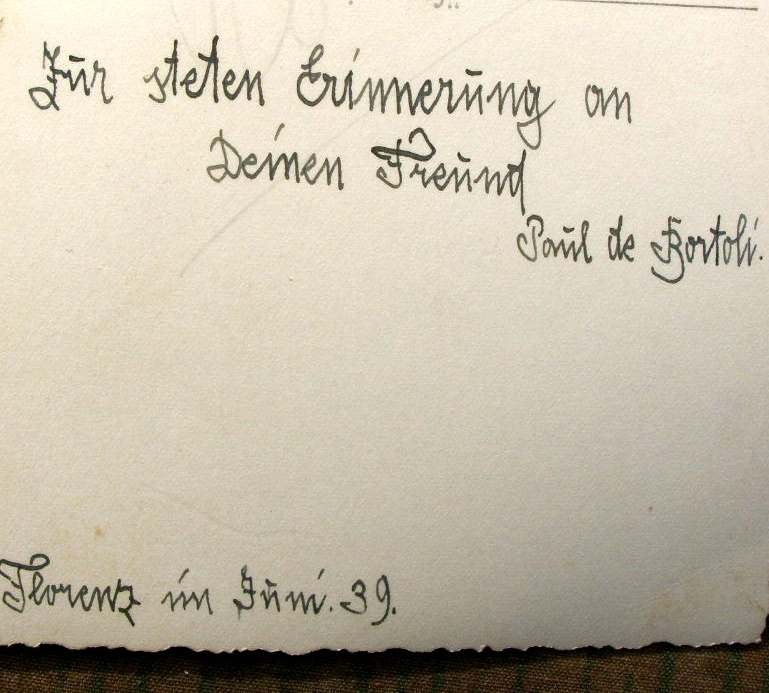 Zur steten Erinnerung an
Deinen Freund
Paul de Bortoli.
Florenz im Juni. 39.